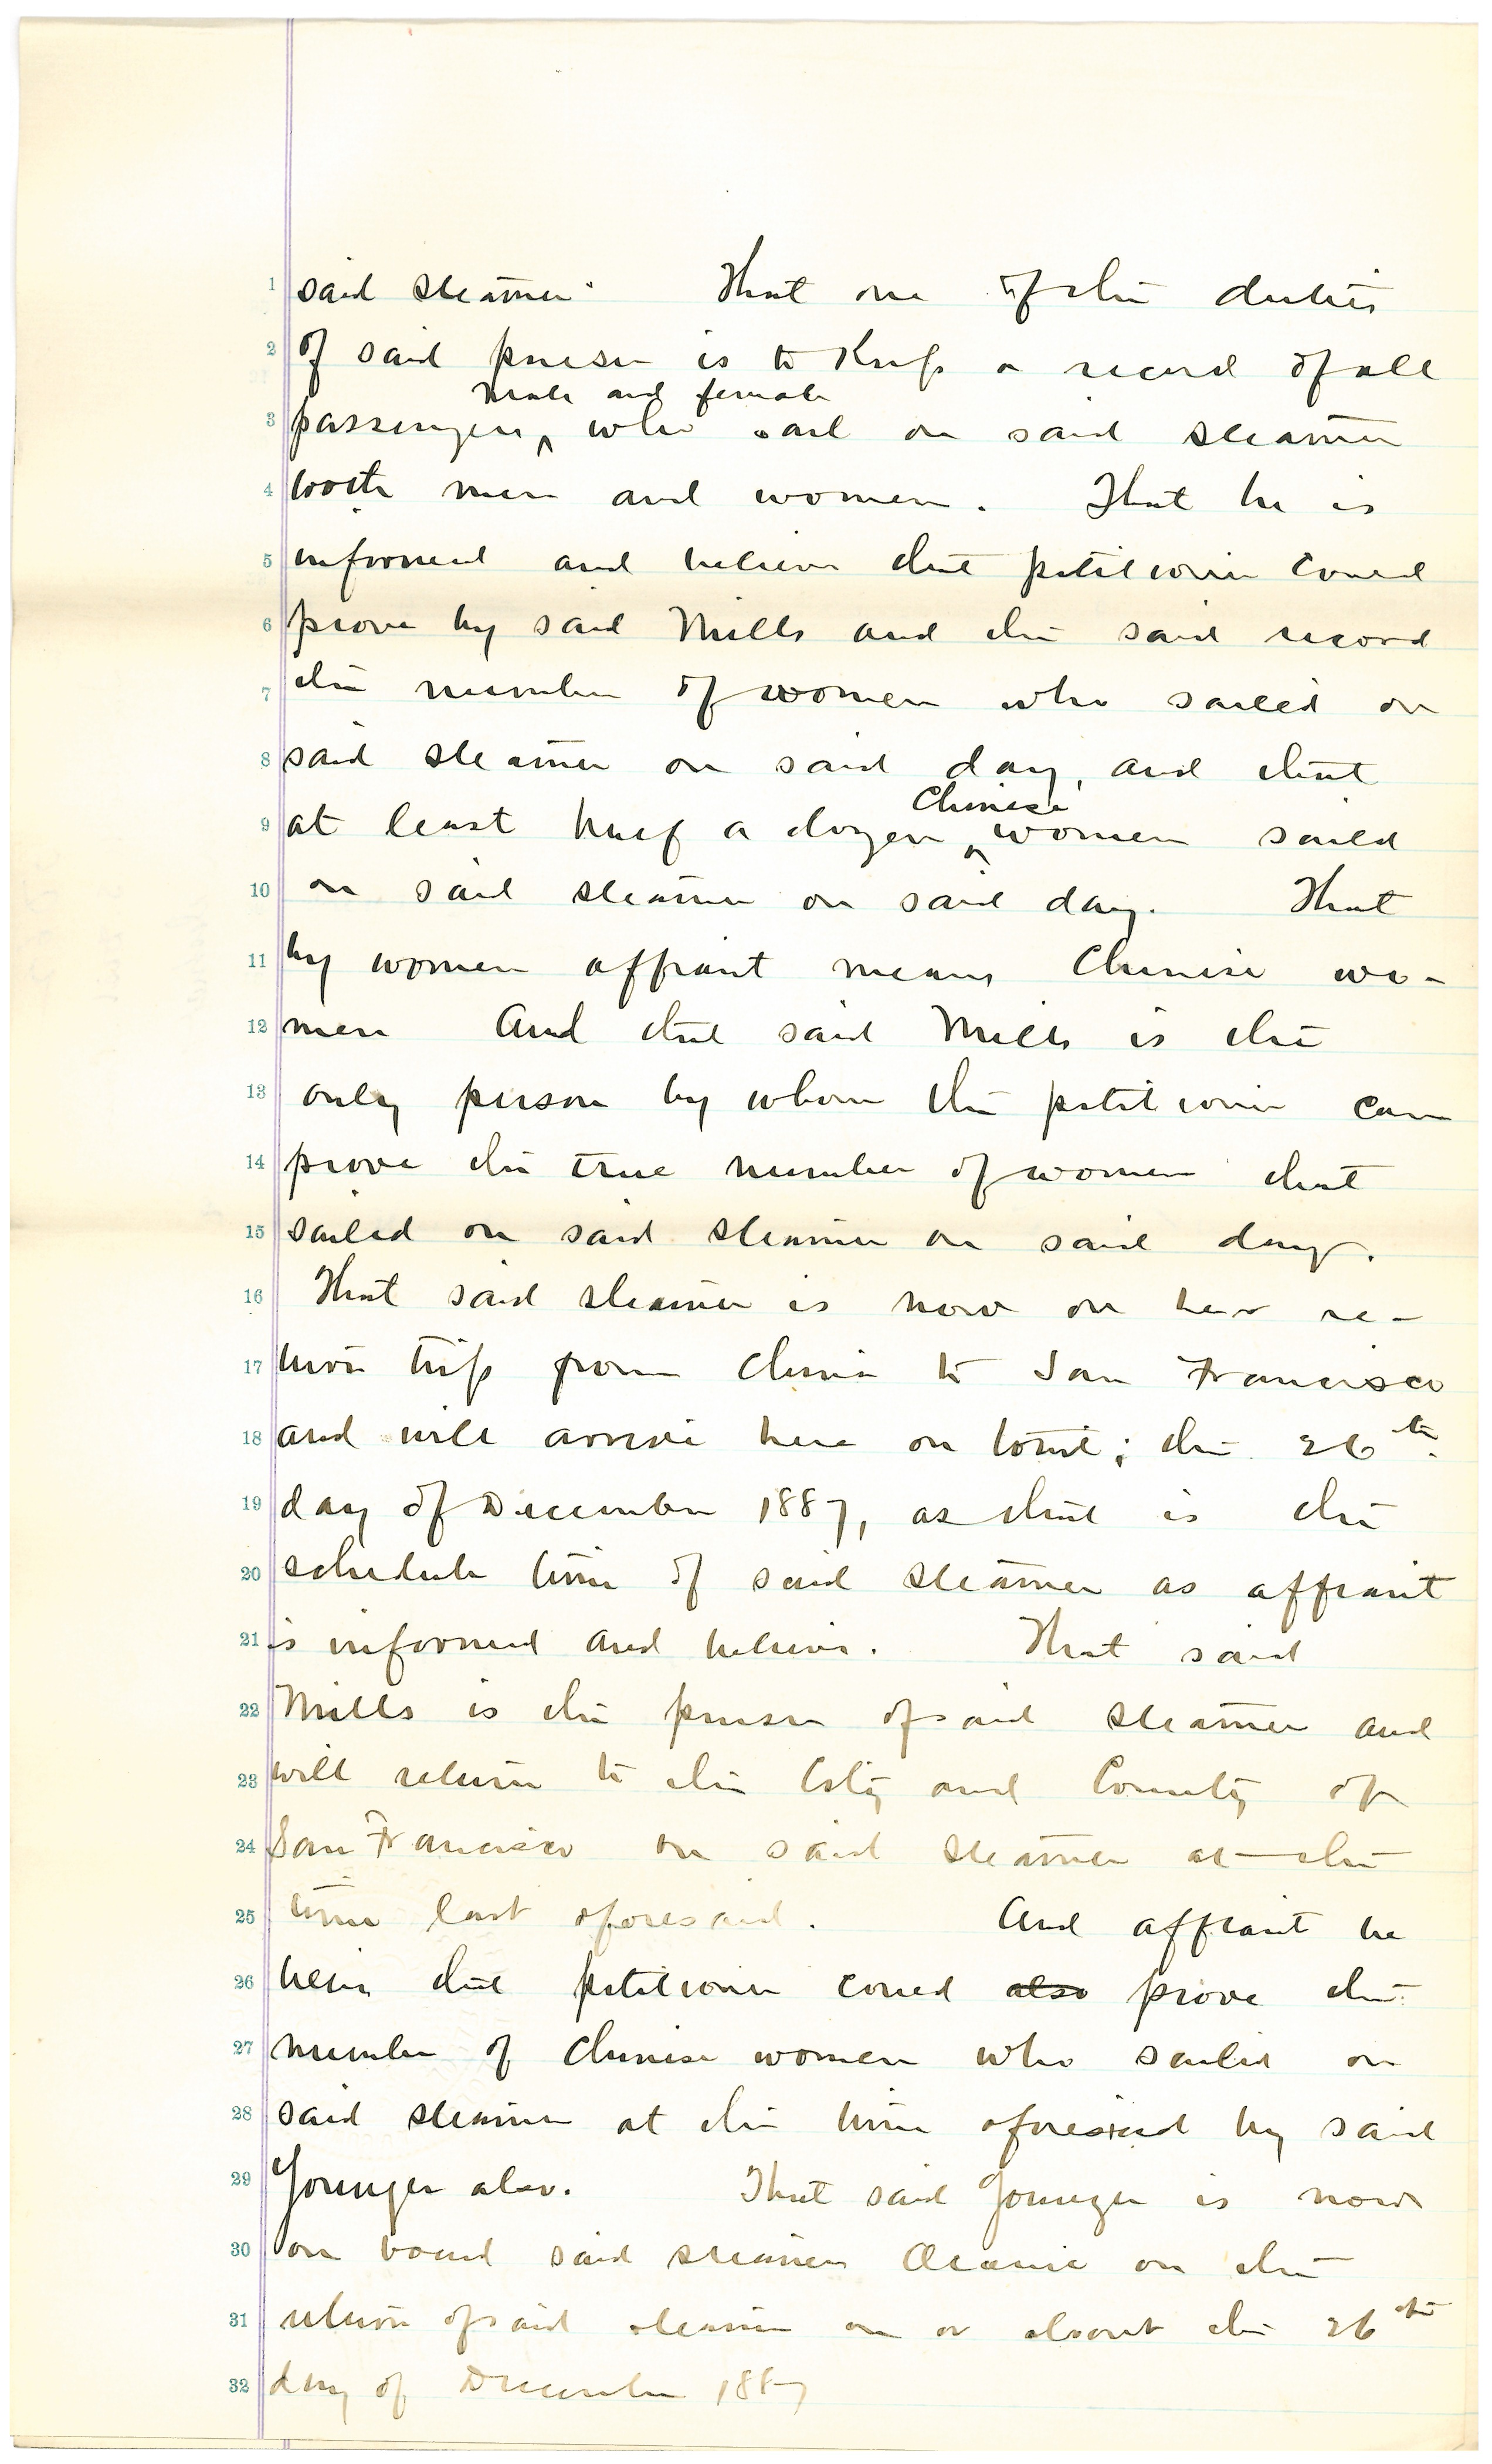 1 said steamer. That one of the duties
2 of said purser is to keep a record of all
male and female
3 passengers ^ who sail on said steamer
4 both men and women. That he is
5 informed and believes that petitioner could
6 prove by said Mills and the said record
7 the number of women who sailed on
8 said steamer on said day, and that
Chinese
9 at least half a dozen ^ women sailed
10 on said steamer on said day. That
11 by women affiant means Chinese wo-
12 men And that said Mills is the
13 only person by whom the petitioner can
14 prove the true number of women that
15 sailed on said steamer on said day.
16 That said steamer is now on her re-
17 turn trip from China to San Francisco
18 and will arrive here on the 26th
19 day of December 1887, as that is the
20 schedule time of said steamer as affiant
21 is informed and believes. That said
22 Mills is the purser of said steamer and
23 will return to the City and County of
24 San Francisco on said steamer at the
25 time last aforesaid. And affiant be
26 lieves that petitioner could also prove the
27 number of Chinese women who sailed on
28 said steamer at the time aforesaid by said
29 Younger also. That said Younger is now
30 on board said steamer Oceanic on the
31 return of said steamer on or about the 26th
32 day of December 1887